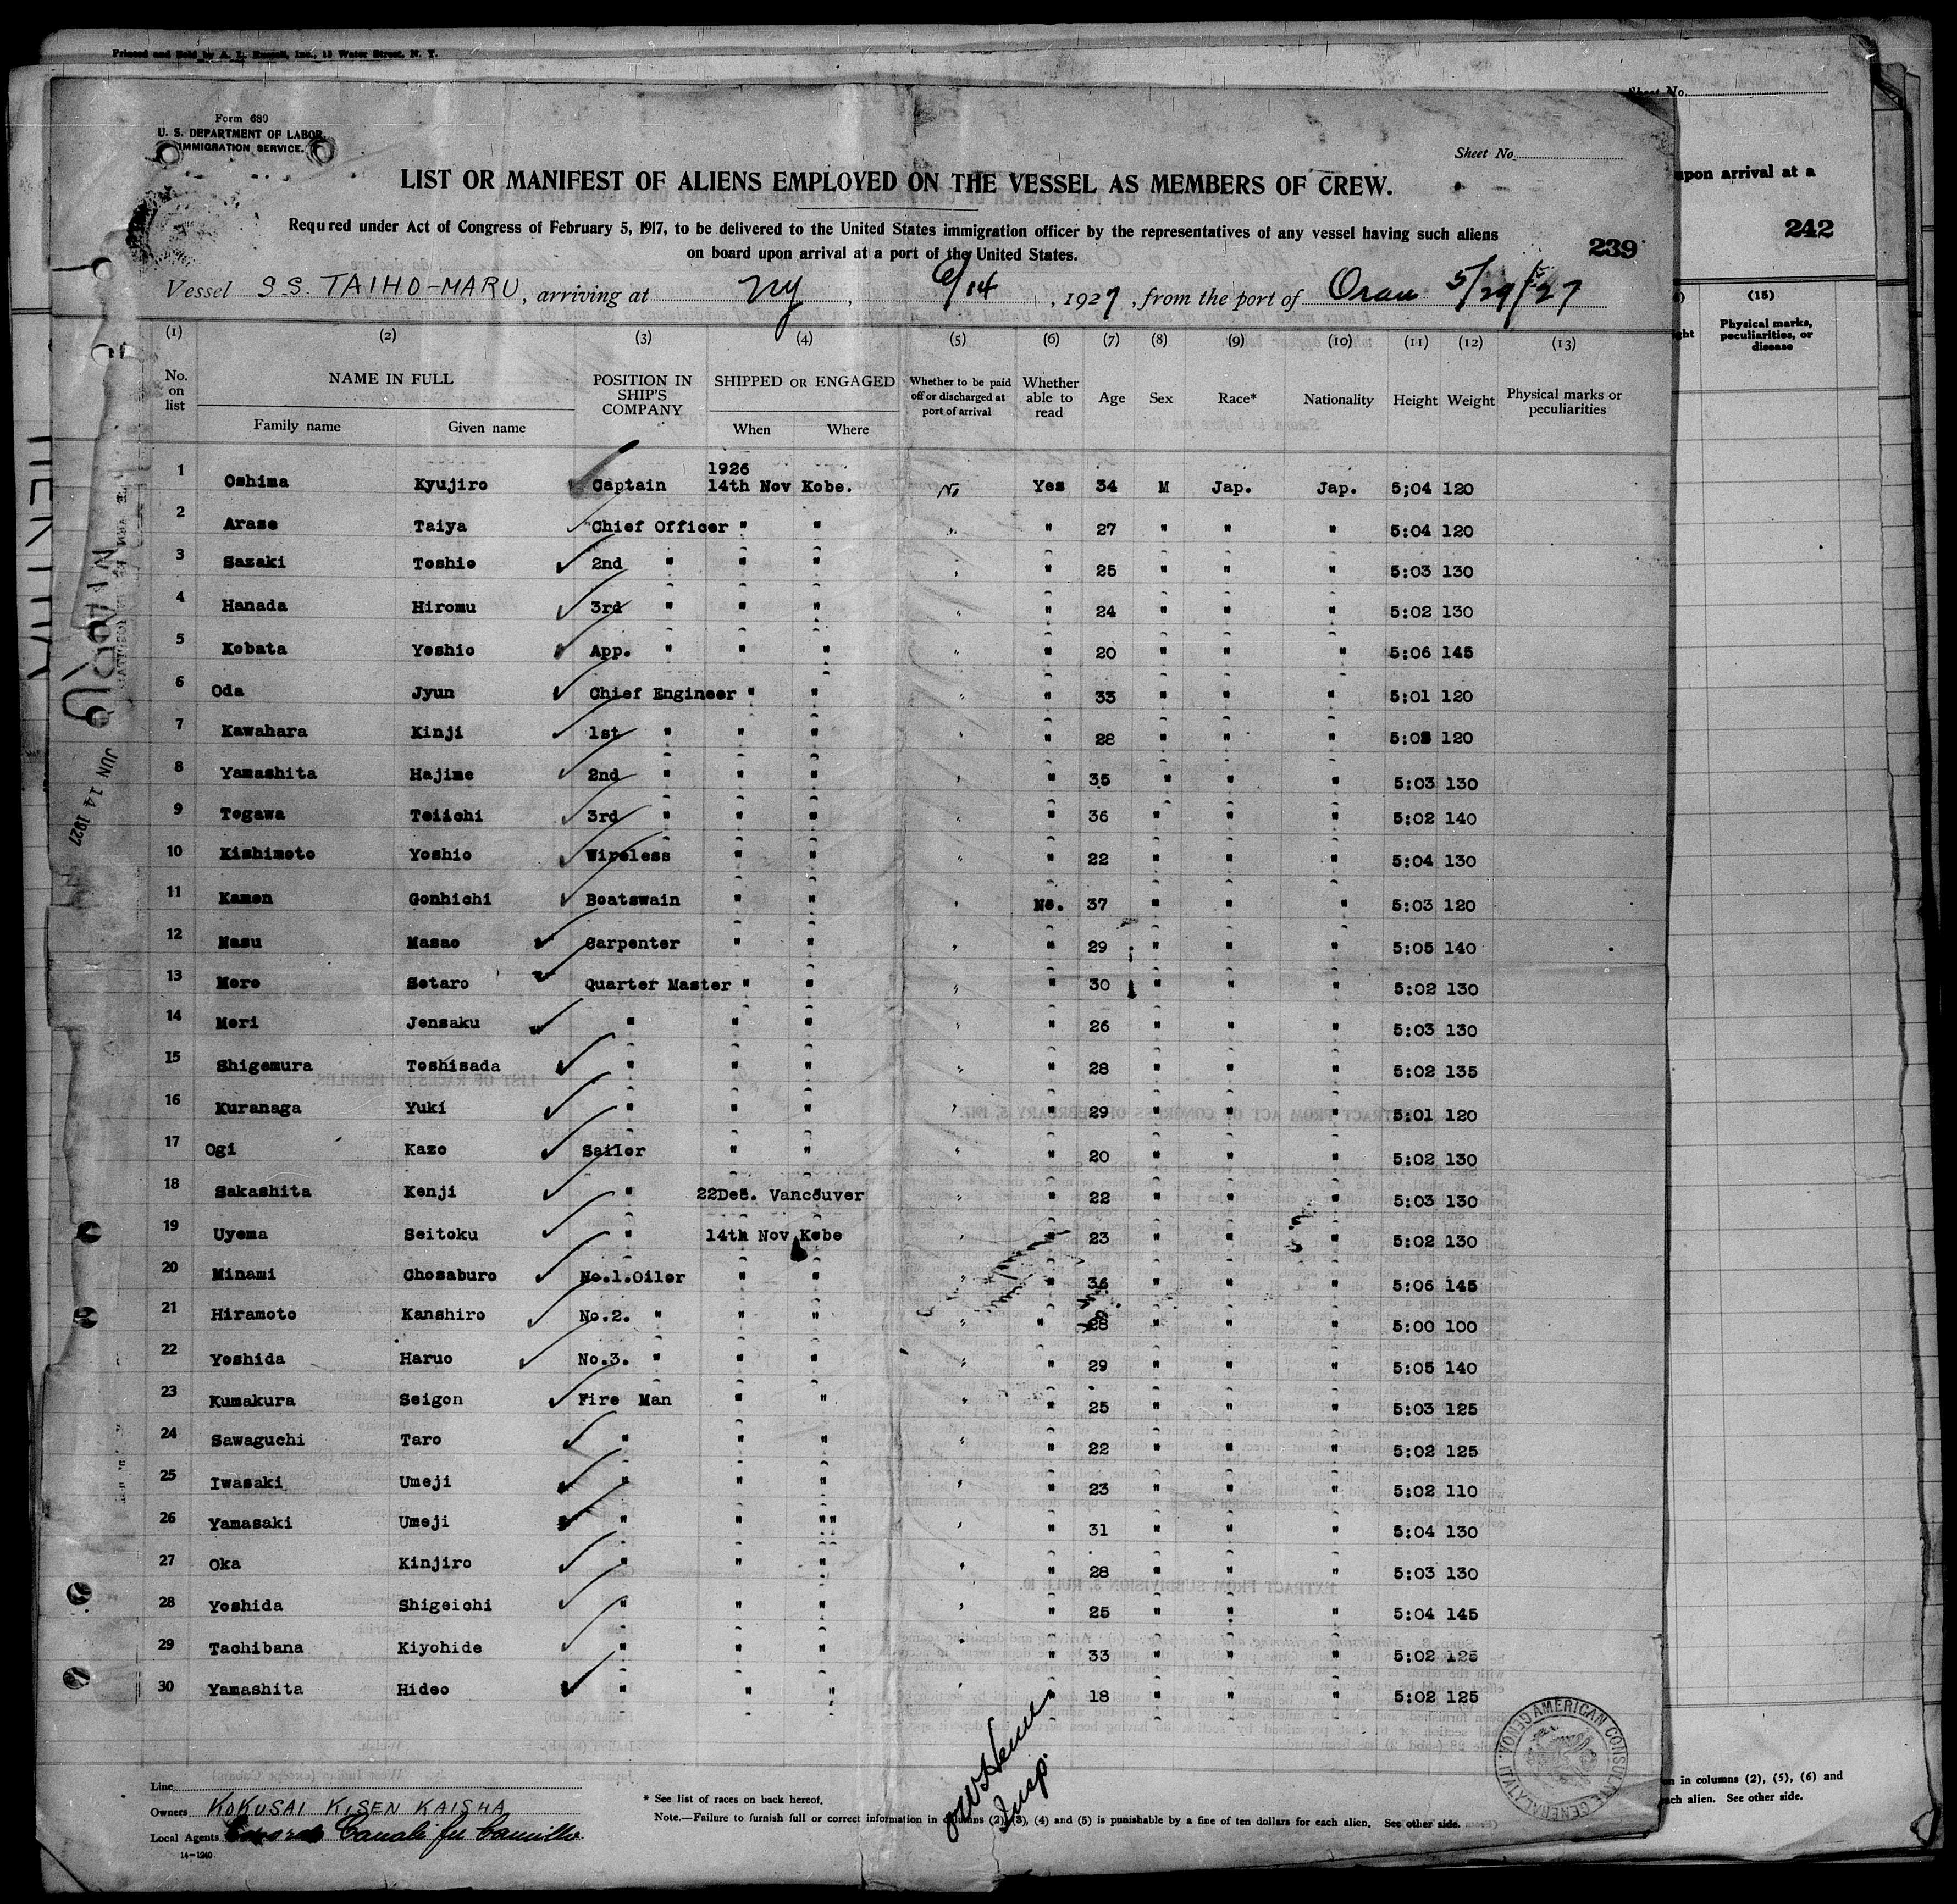 Printed and Sold by A. L. Russell, Inc., 13 Water Street, N. Y.
Sheet No.
upon arrival at a
242
(15)
Physical marks, peculiarities, or disease
Form 689
U. S. DEPARTMENT OF LABOR
IMMIGRATION SERVICE.
Sheet No.
LIST OR MANIFEST OF ALIENS EMPLOYED ON THE VESSEL AS MEMBERS OF CREW.
Required under Act of Congress of February 5, 1917, to be delivered to the United States immigration officer by the representatives of any vessel having such aliens
on board upon arrival at a port of the United States.
239
Vessel S.S. TAIHO-MARU, arriving at NY, 6/14, 1927, from the port of Oran 5/29/27
(1) (2) (3) (4) (5) (6) (7) (8) (9) (10) (11) (12) (13)
No. on list NAME IN FULL POSITION IN SHIP'S COMPANY SHIPPED OR ENGAGED Whether to be paid off or discharged at port of arrival Whether able to read Age Sex Race* Nationality Height Weight Physical marks or peculiarities
Family name Given name When Where
1926
1 Oshima Kyujiro Captain 14th Nov Kobe. No Yes 34 M Jap. Jap. 5;04 120
2 Arase Taiya Chief Officer " " " " 27 " " " 5:04 120
3 Sazaki Toshio 2nd " " " " " 25 " " " 5:03 130
4 Hanada Hiromu 3rd " " " " " 24 " " " 5:02 130
5 Kobata Yoshio App. " " " " " 20 " " " 5:06 145
6 Oda Jyun Chief Engineer " " " " 33 " " " 5:01 120
7 Kawahara Kinji 1st " " " " " 28 " " " 120
8 Yamashita Hajime 2nd " " " " " 35 " " " 5:03 130
9 Togawa Teiichi 3rd " " " " " 36 " " " 5:02 140
10 Kishimoto Yoshio Wireless " " " " 22 " " " 5:04 130
11 Kamon Gonhichi Boatswain " " " No. 37 " " " 5:03 120
12 Nasu Masao Carpenter " " " " 29 " " " 5:05 140
13 More Sotaro Quarter Master " " " " 30 " " " 5:02 130
14 Mori Jensaku " " " " " 26 " " " 5:03 130
15 Shigemura Toshisada " " " " " 28 " " " 5:02 135
16 Kuranaga Yuki " " " " " 29 " " " 5:01 120
17 Ogi Kazo Sailor " " " " 20 " " " 5:02 130
18 Sakashita Kenji " 22Dec. Vancouver " " 22 " " " 5:03 130
19 Uyema Seitoku " 14th Nov Kobe " 23 " " " 5:02 130
20 Minami Chosaburo No.1.Oiler " " " " 36 " " " 5:06 145
21 Hiramoto Kanshiro No.2. " " " " " 28 " " " 5:00 100
22 Yoshida Haruo No.3. " " " " " 29 " " " 5:05 140
23 Kumakura Seigon Fire Man " " " " 25 " " " 5:03 125
24 Sawaguchi Taro " " " " " 22 " " " 5:02 125
25 Iwasaki Umeji " " " " " 23 " " " 5:02 110
26 Yamasaki Umeji " " "" " " 31 " " " 5:04 130
27 Oka Kinjiro " " " " " 28 " " " 5:03 130
28 Yoshida Shigeichi " " " " " 25 " " " 5:04 145
29 Tachibana Kiyohide " " " " " 33 " " " 5:02 125
30 Yamashita Hideo " " " " " 18 " " " 5:02 125
JUN 14 1927
Line
Owners KOKUSAI KISEN KAISHA
Local Agents
14-1240
* See list of races on back hereof.
Note.—Failure to furnish full or correct information in columns (2), (3), (4) and (5) is punishable by a fine of ten dollars for each alien. See other side.
Insp.
AMERICAN CONSULATE GENERAL
GENOA, ITALY
in columns (2), (5), (6) and
each alien. See other side.